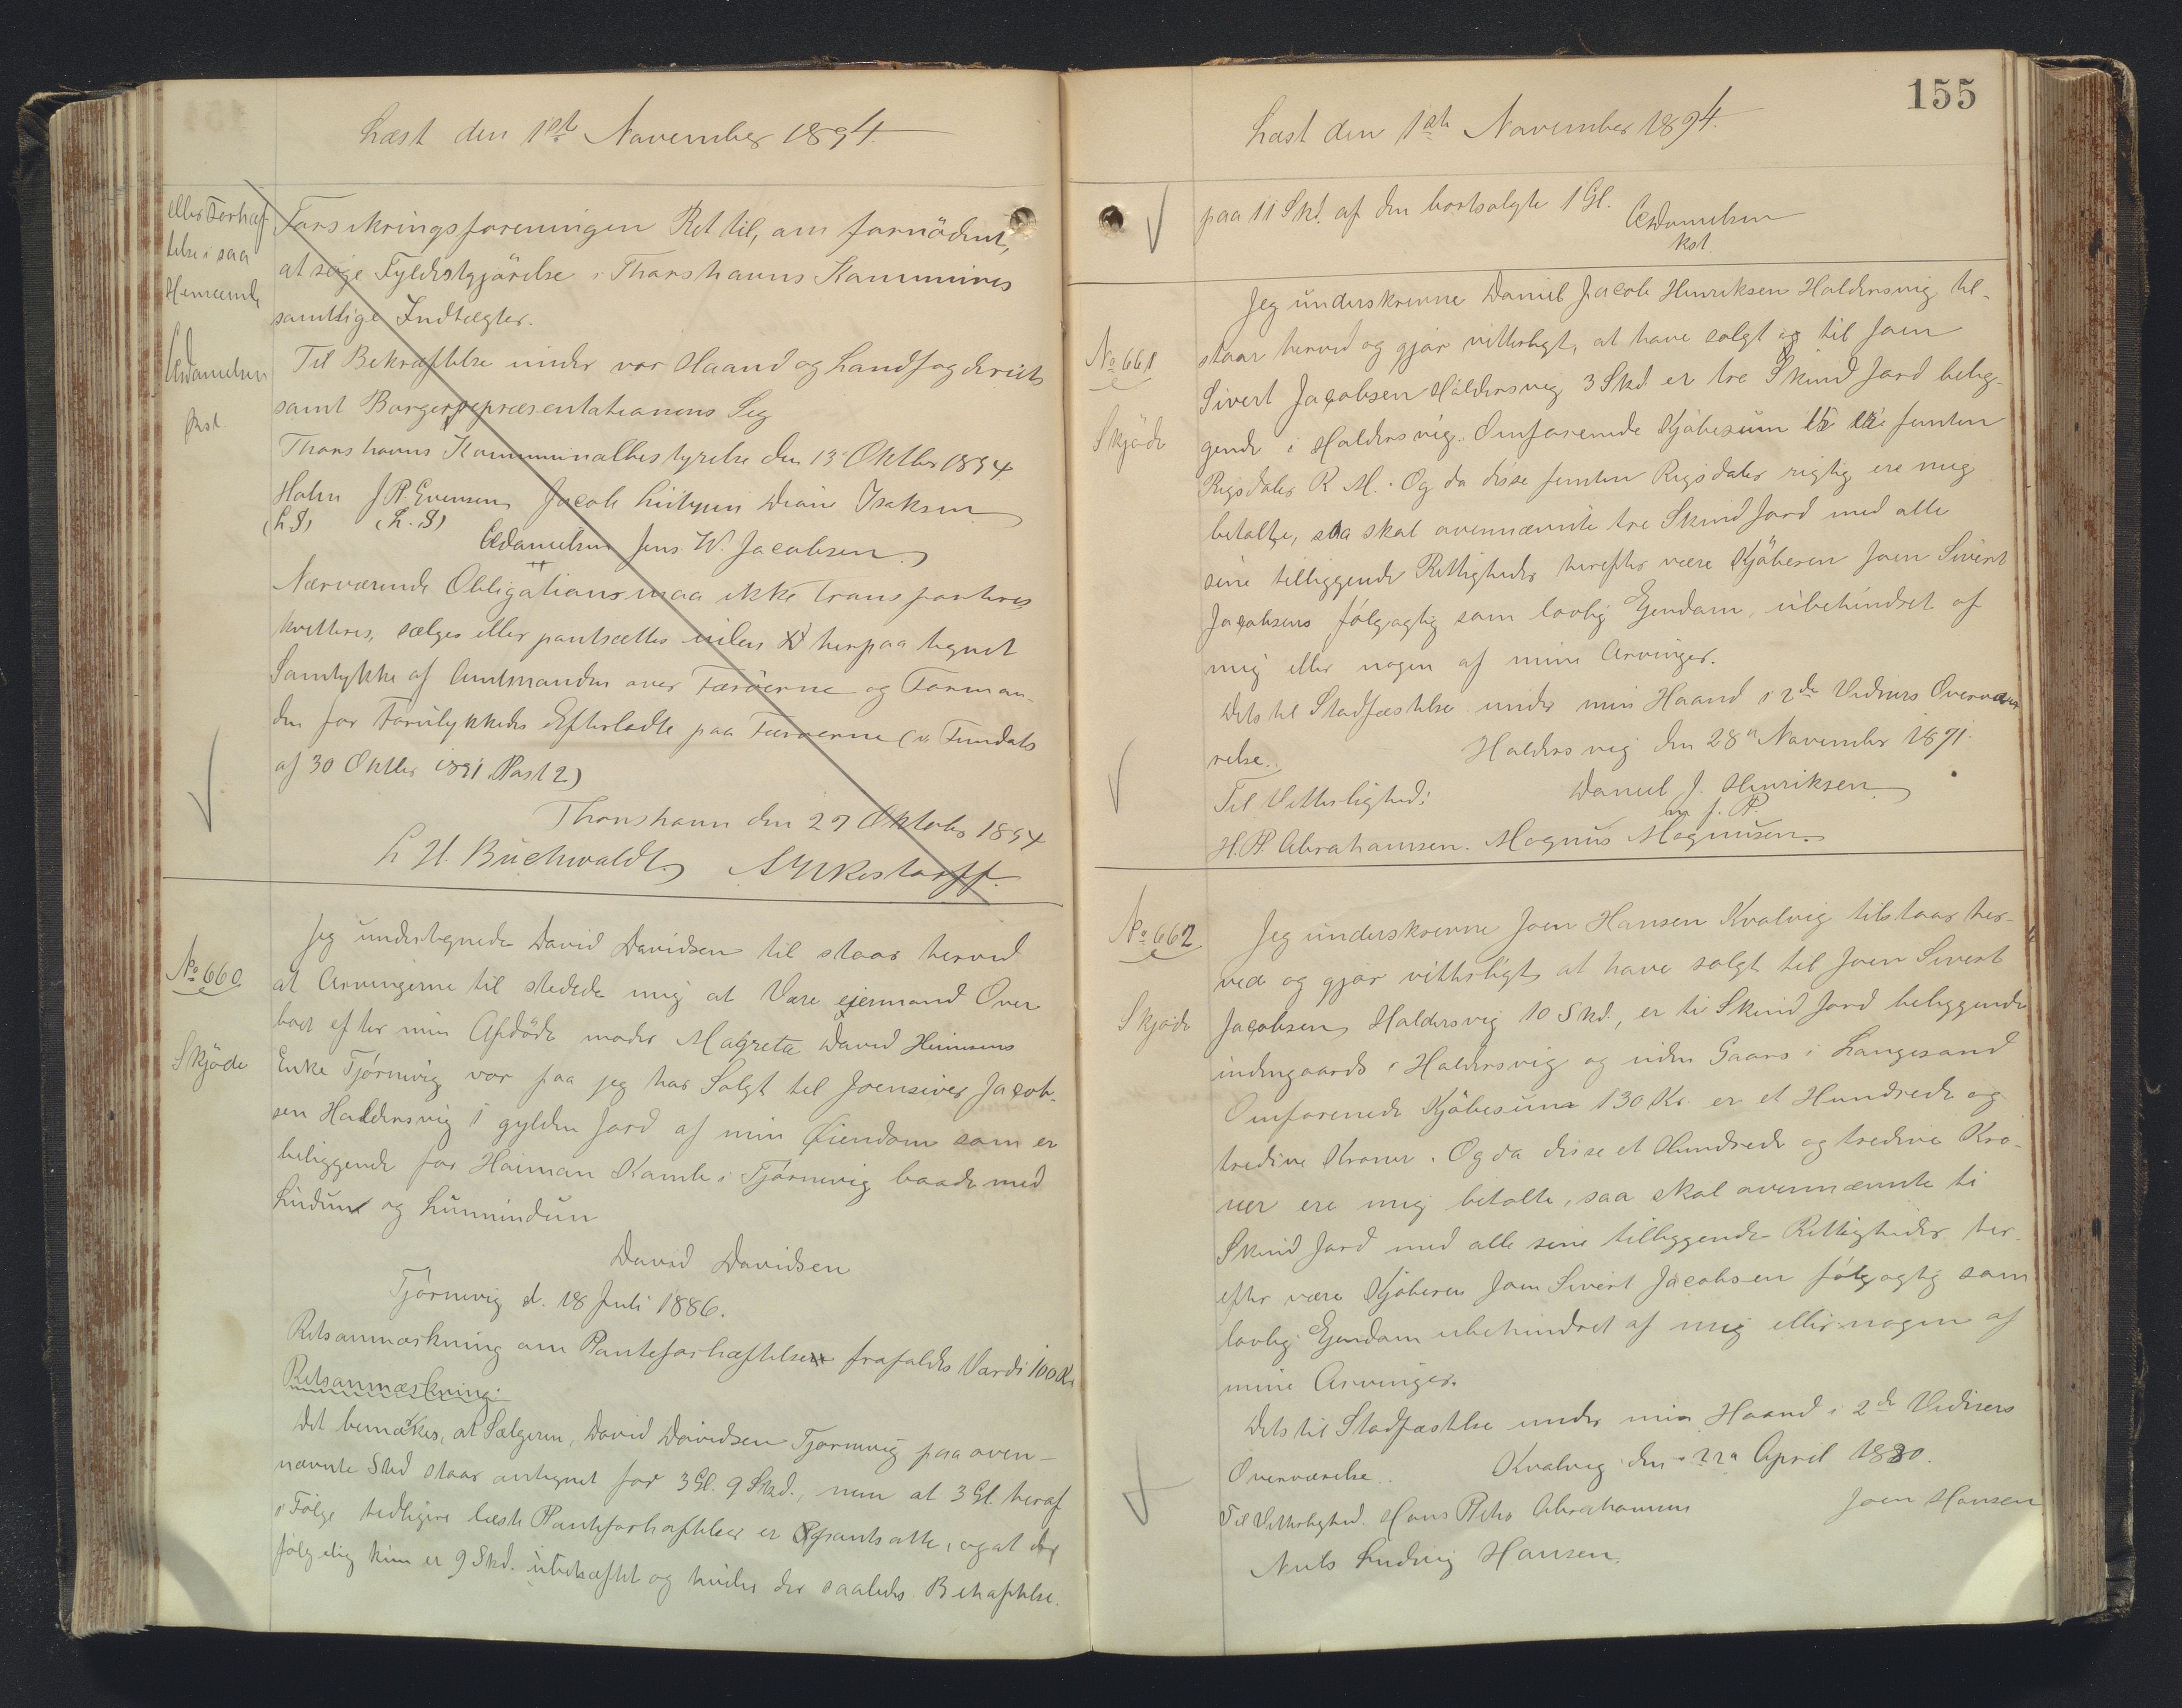 Læst den 1ste November 1894.
eller Forhæf
telse i saa
Henseende
CADanielsen
kst.
Forsikringsforeningen Ret til, om fornödent,
at söge Fyldestgjörelse i Thorshavns Kommunes
samtlige Indtægter.
Til Bekræftelse under vor Haand og Landfogderiets
samt Borgerrepræsentationens Seg
Thorshavns Kommunalbestyrelse den 13 Oktbr 1894
Holm J P. Evensen Jacob Lützen Isaksen
(L S) (L. S)
CADanielsen Jens W. Jacobsen
Nærværende Obligation maa ikke transporteres
kvitteres, sælges eller pantsættes uden herpaa tegnet
Samtykke af Amtmanden over Færöerne og Forman-
den for Forulykkedes Efterladte paa Færöerne (v. Fundats
af 30 Oktbr 1891 Post 2)
Thorshavn den 27 Oktober 1894
L H. Buchwaldt
No 660
Skjöde
Jeg undertegnede David Davidsen til staar herved
at Arvingerne til stedede mig at Være ejermand Over
boet efter min Afdöde moder Magreta David Heinesens
Enke Tjörnivig vor paa jeg har Solgt til Joensiver Jacob-
sen Haldersvig 1 gylden Jord af min Eiendom som er
beliggende for Heiman Kamb i Tjörnevig baade med
Lúdun og Lúnnindun
David Davidsen
Tjörnevig d. 18 Juli 1886.
Retsanmærkning om Panteforhæftelse frafaldes Værdi 100 Kr
Retsanmærkning:
Det bemærkes, at Sælgeren, David Davidsen Tjörnevig paa oven-
nævnte Sted staar antegnet for 3 Gl. 9 Skd., men at 3 Gl. heraf
i Fölge tidligere læste Panteforhæftelser er pantsatte, og at der
fölgelig kun er 9 Skd. ubehæftet og hviler der saaledes Behæftelse.
155
Læst den 1ste November 1894.
paa 11 Skd. af den bortsolgte 1 Gl.
CADanielsen
kst.
No 661
Skjöde
Jeg underskrevne Daniel Jacob Henriksen Haldersvig til-
staar herved og gjör vitterligt, at have solgt til Joen
Sivert Jacobsen Haldersvig 3 Skd er tre Skind Jord belig-
gende i Haldersvig. Omforenede Kjöbesum 15 femten
Rigsdaler R. M. Og da disse femten Rigsdaler rigtig ere mig
betalte, saa skal ovennævnte tre Skind Jord med alle
sine tilliggende Rettigheder herefter være Kjöberen Joen Sivert
Jacobsens fölgagtig som lovlig Ejendom, ubehindret af
mig eller nogen af mine Arvinger.
Dets til Stadfæstelse under min Haand i 2de Vidners Overvæ-
relse.
Haldersvig den 28n November 1871.
Til Vitterlighed: Daniel J. Henriksen
m f. P
H. P. Abrahamsen. Magnus Magnussen.
No 662
Skjöde
Jeg underskrevne Joen Hansen Kvalvig tilstaar her-
ved og gjör vitterligt at have solgt til Joen Sivert
Jacobsen Haldersvig 10 Skd., er ti Skind Jord beliggende
indengaards i Haldersvig og uden Gaars i Langesand
Omforenede Kjöbesum 130 Kr. er et Hundrede og
tredive Kroner. Og da disse et Hundrede og tredive Kro-
ner ere mig betalte, saa skal ovennævnte ti
Skind Jord med alle sine tilliggende Rettigheder her-
efter være Kjöberen Joen Sivert Jacobsen fölgagtig som
lovlig Ejendom ubehindret af mig eller nogen af
mine Arvinger.
Dets til Stadfæstelse under min Haand i 2de Vidners
Overværelse. Kvalvig den 22n April 1880.
Til Vitterlighed. Hans Peter Abrahamsen Joen Hansen
Niels Ludvig Hansen.